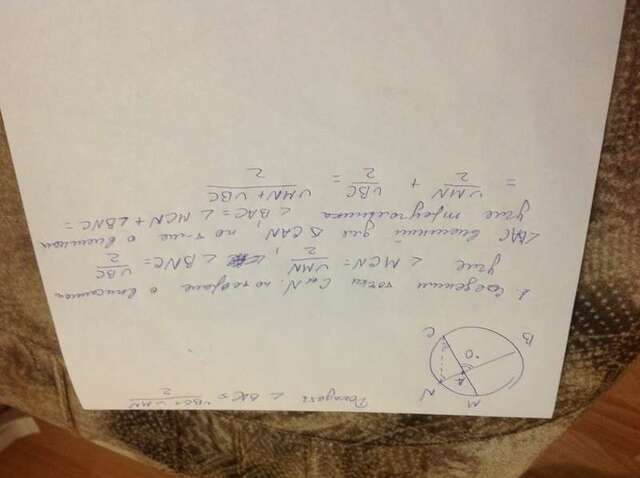 M
N
A
O
B
C
Доказать ∠ BAC = ◡BC + ◡MN / 2
1. Соеденим точки C и N. по теореме о вписанном
угле ∠ MCN = ◡MN / 2 , ∠ BNC = ◡BC / 2
∠BAC внешний для △ CAN, по т-ме о внешнем
угле треугольника ∠ BAC = ∠ MCN + ∠BNC =
= ◡MN / 2 + ◡BC / 2 = ◡MN + ◡BC / 2